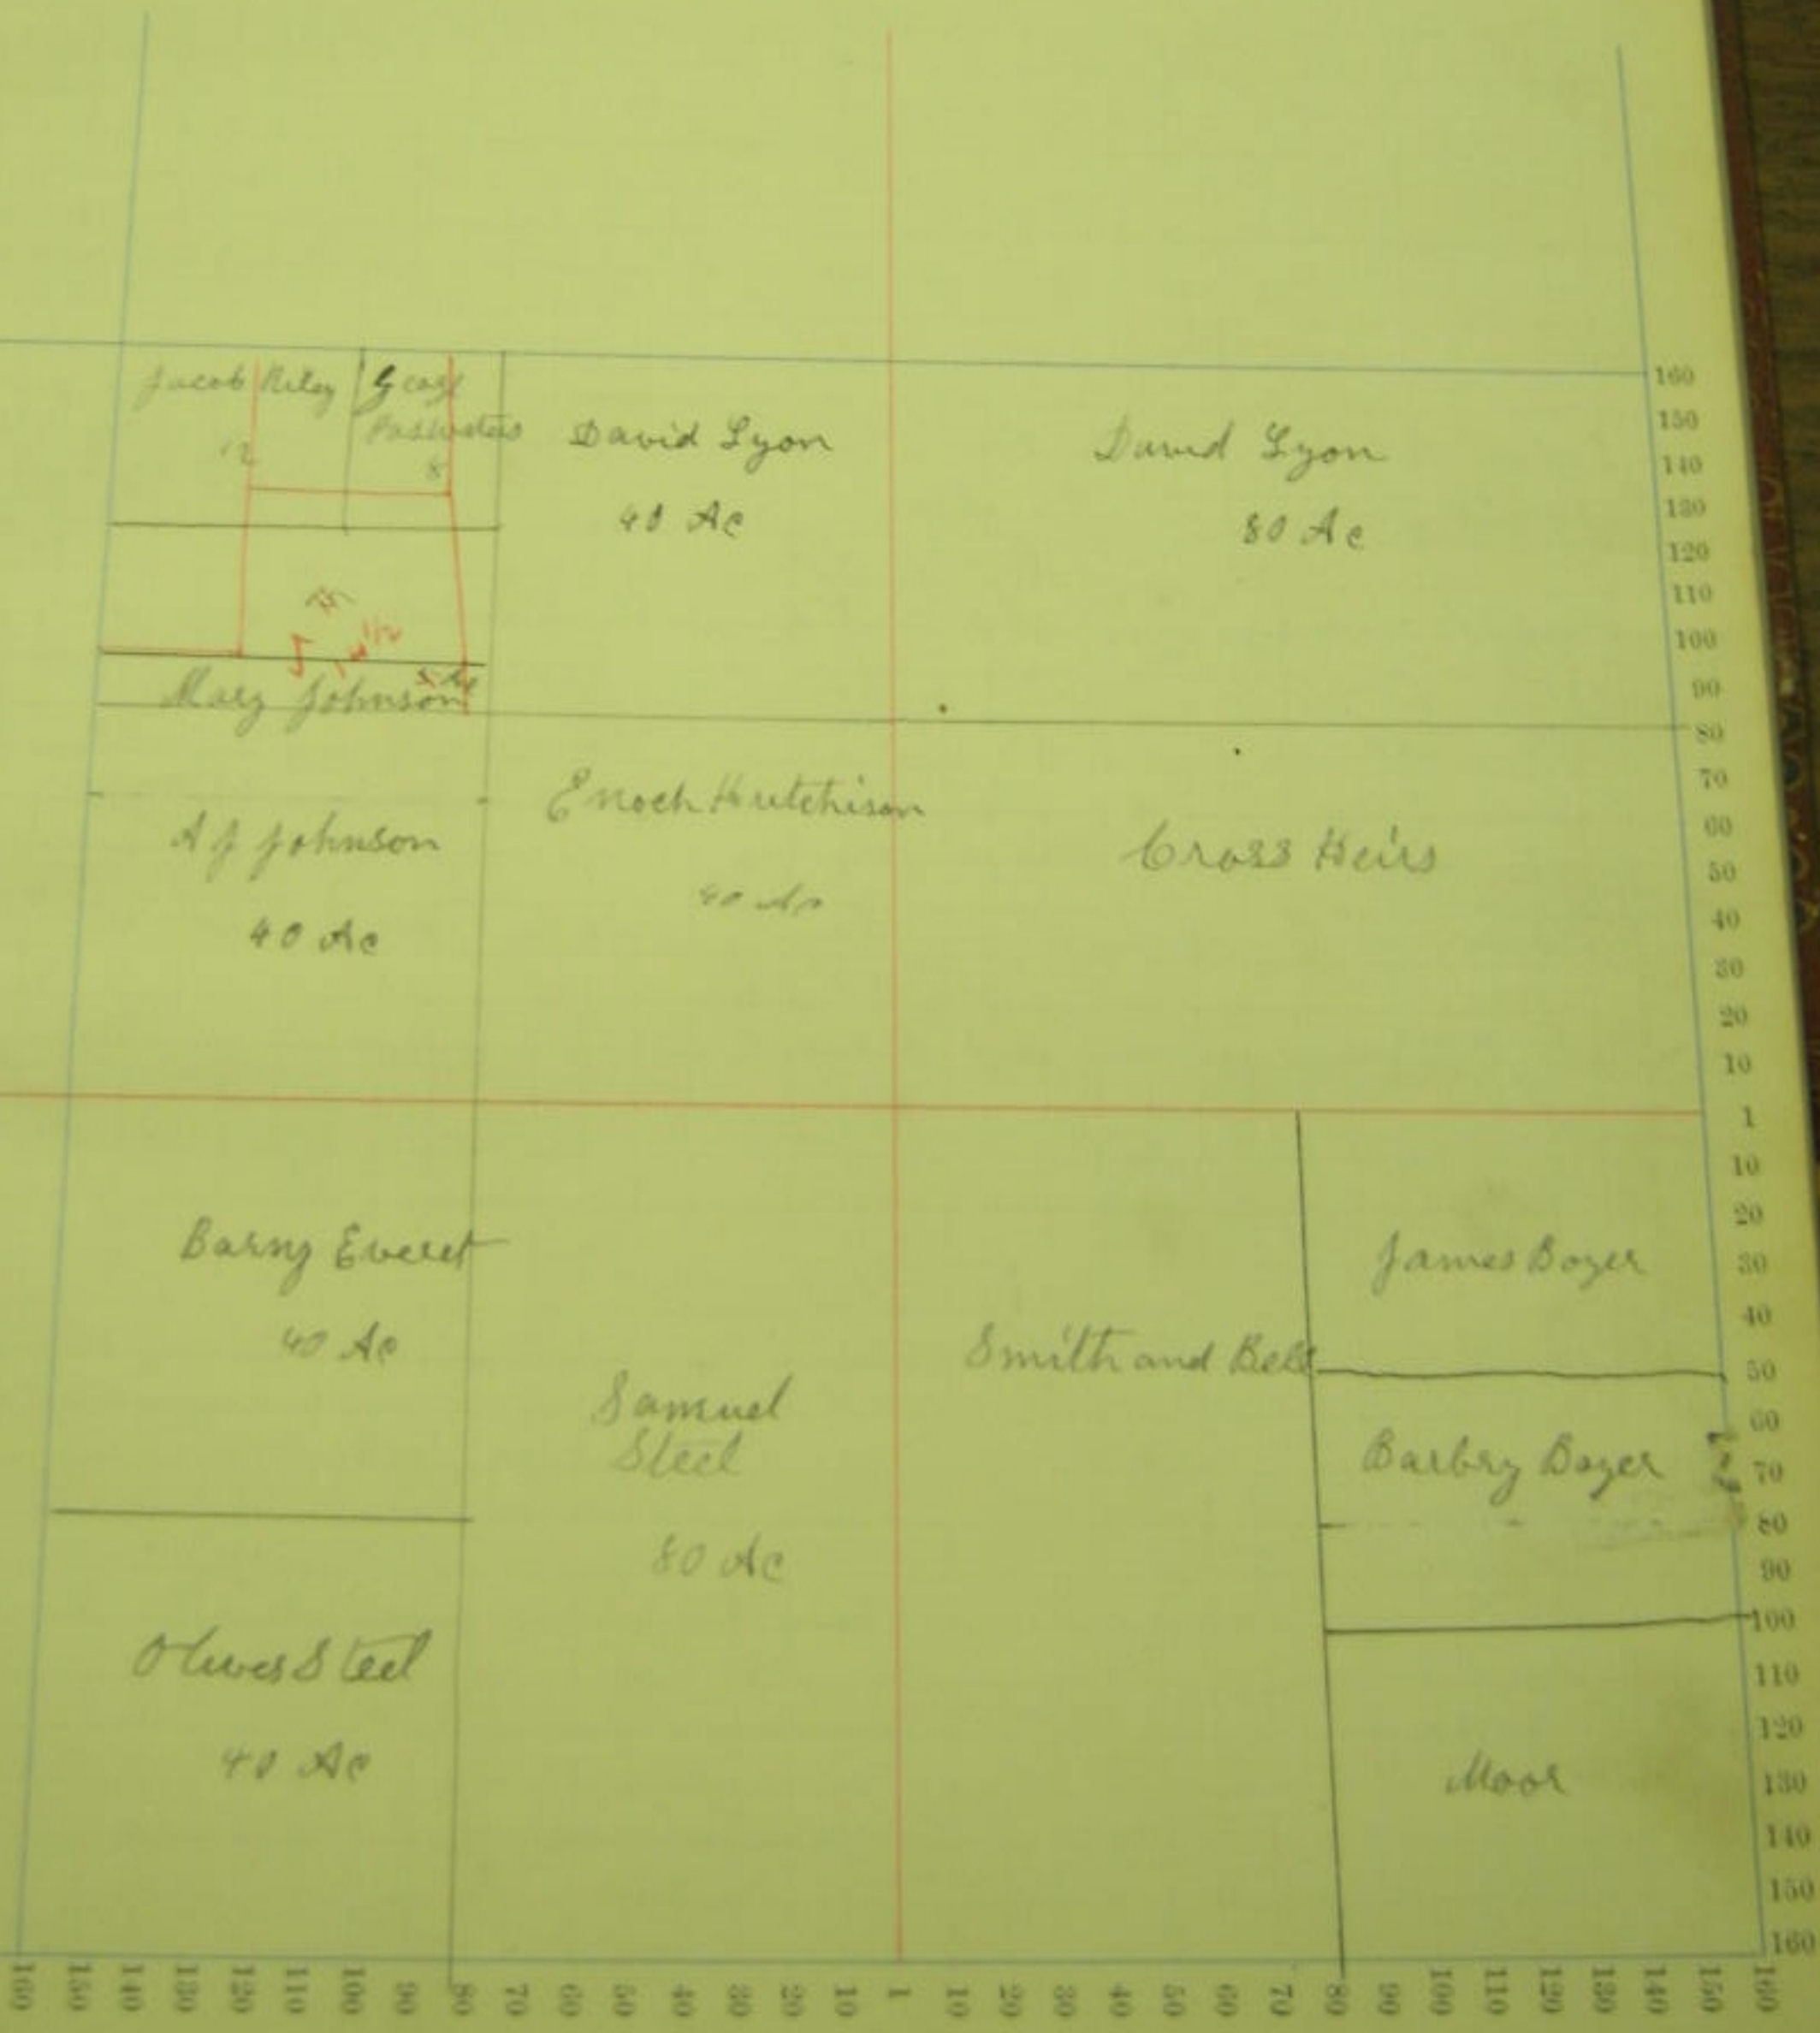 Jacob Riley
12
8
David Lyon
40 Ac
David Lyon
80 Ac
Mary Johnson
A J Johnson
40 Ac
Enoch Hutchison
40 Ac
Cross Heirs
Barny Everet
40 Ac
Samuel
Steel
80 Ac
Smith and Bell
James Boyer
Barbry Boyer
Oliver Steel
40 Ac
Moor
160
150
140
130
120
110
100
90
80
70
60
50
40
30
20
10
1
10
20
30
40
50
60
70
80
90
100
110
120
130
140
150
160
160 150 140 130 120 110 100 90 80 70 60 50 40 30 20 10 1 10 20 30 40 50 60 70 80 90 100 110 120 130 140 150 160